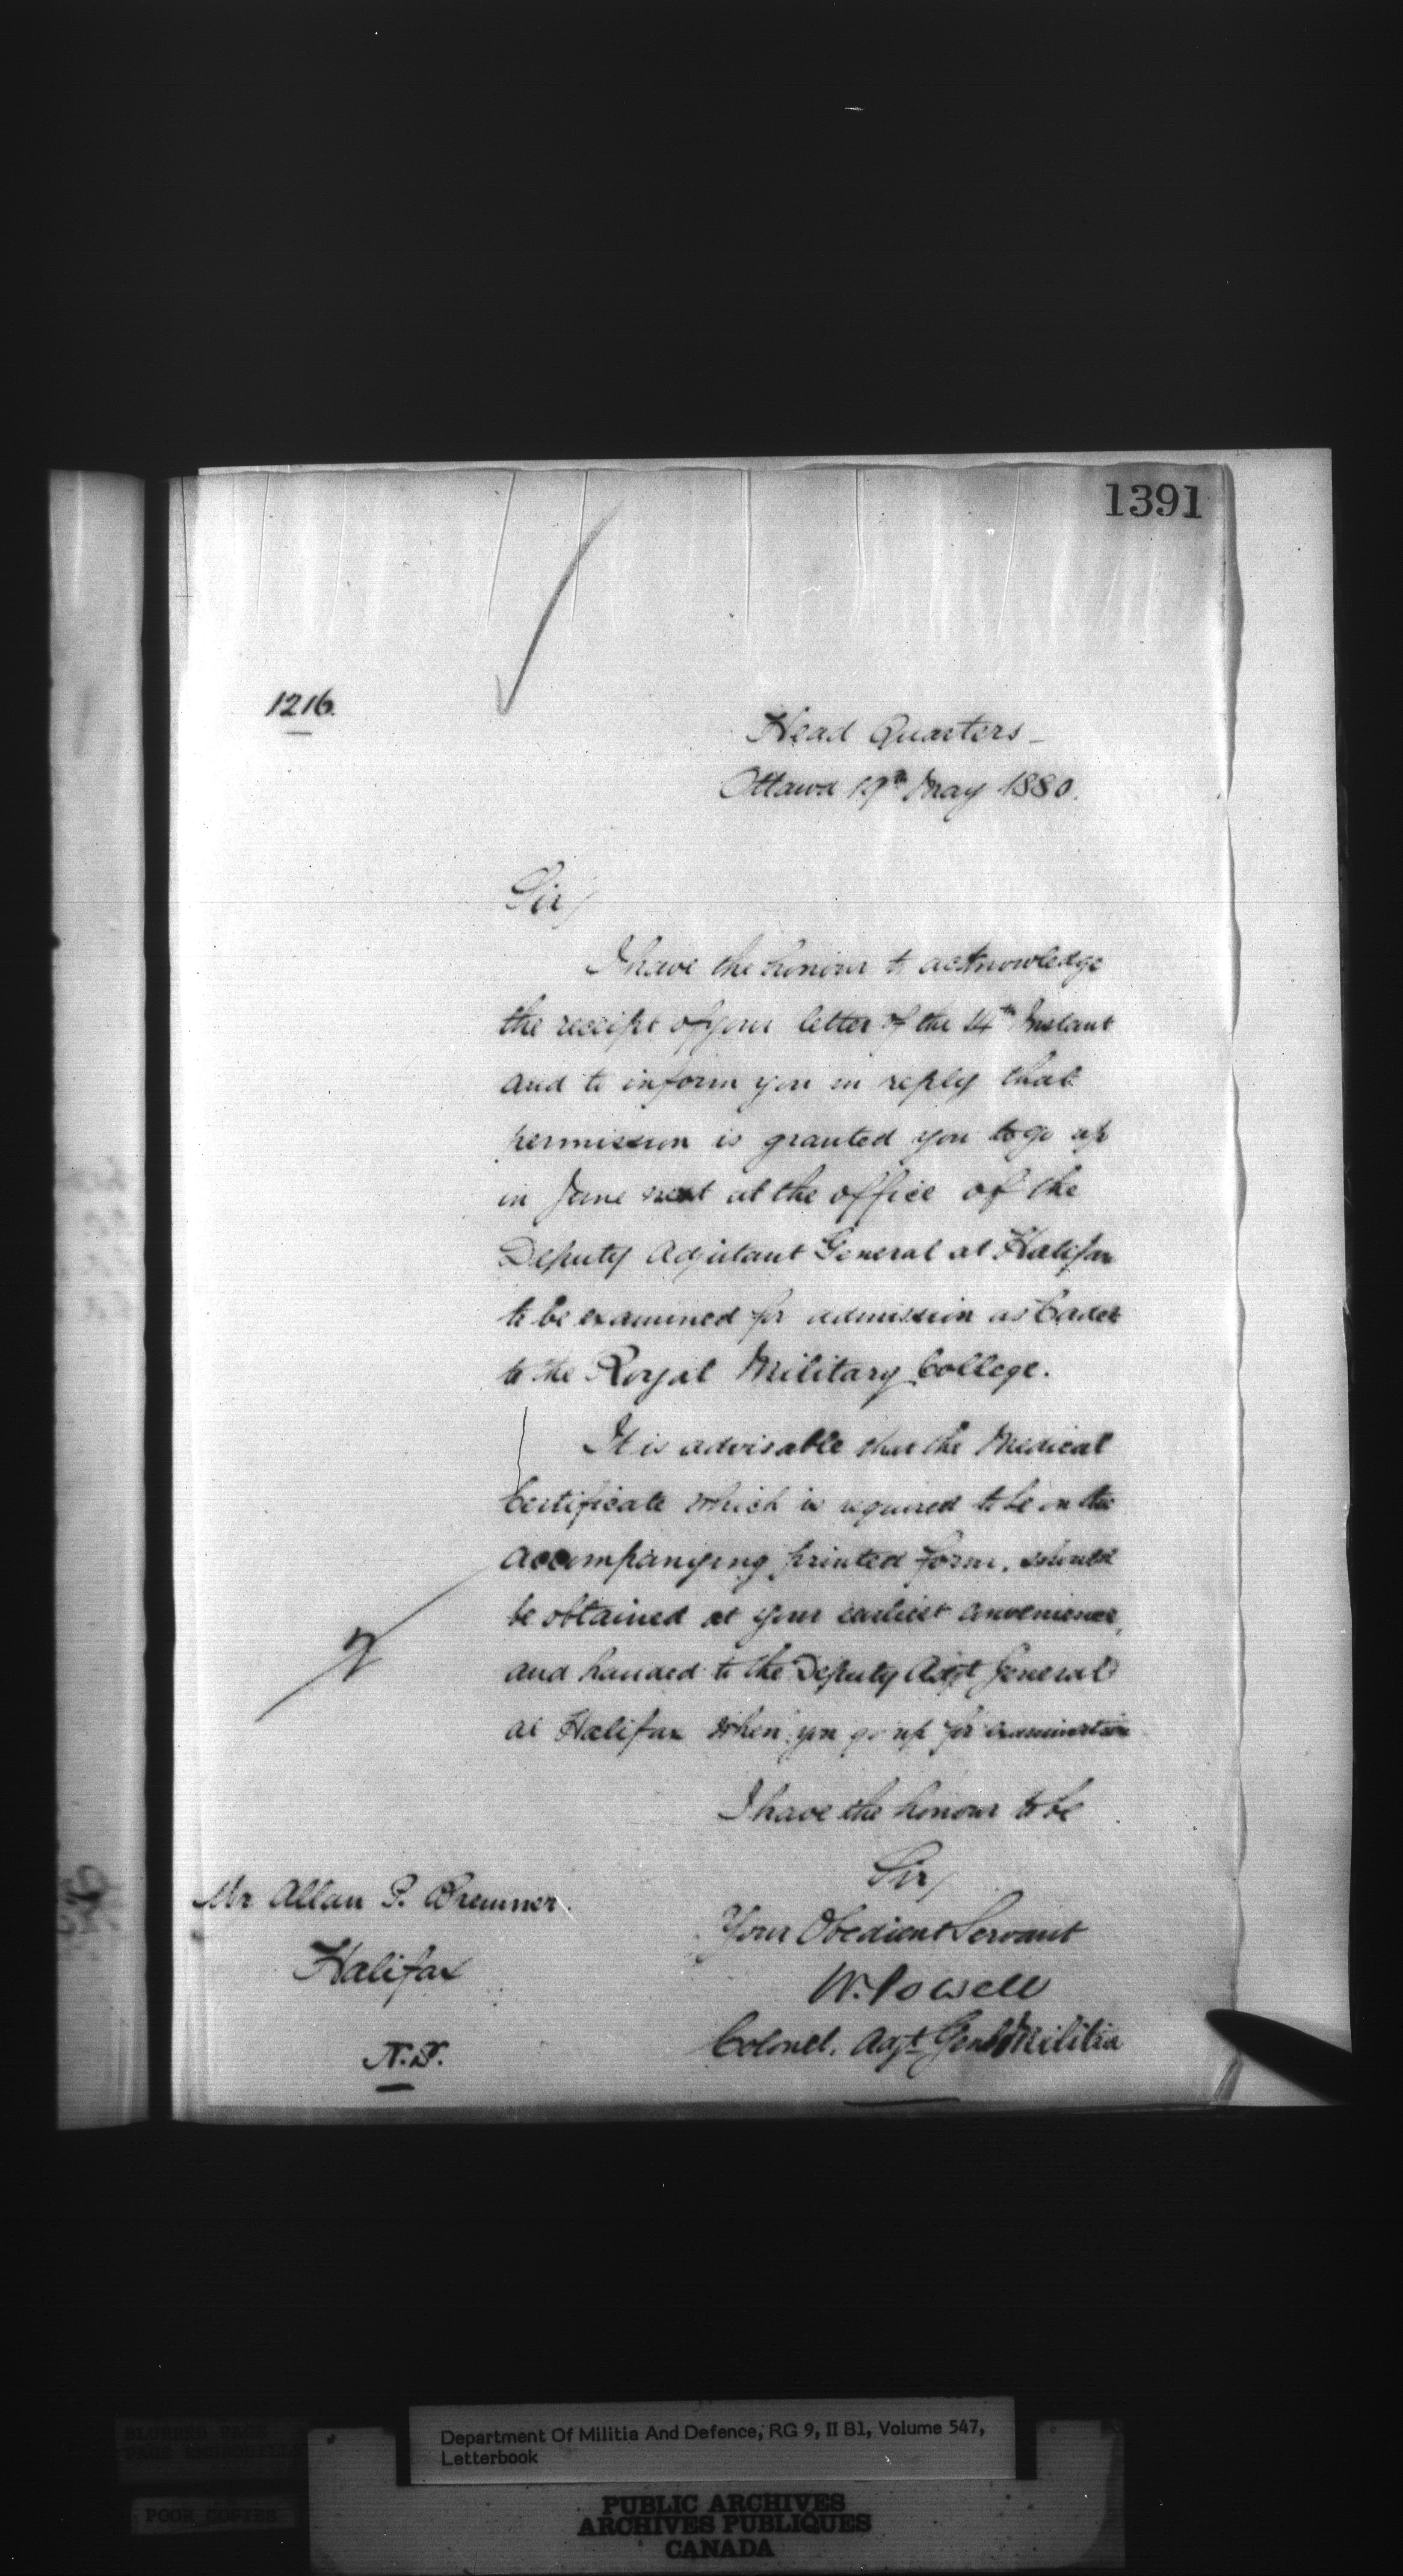 1391
1216.
Head Quarters
Ottawa 19th May 1880.
Sir,
I have the honour to acknowledge
the receipt of your letter of the 14th Instant
and to inform you in reply that
permission is granted you to go up
in June next at the office of the
Deputy Adjutant General at Halifax
to be examined for admission as Cadet
to the Royal Military College.
It is advisable that the Medical
Certificate which is required to be on the
accompanying printed form, should
be obtained at your earliest convenience,
and handed to the Deputy Adjt General
at Halifax when you go up for examination
I have the honour to be
Sir,
Your Obedient Servant
W. Powell
Colonel. Adjt Genl Militia
Mr Allan P. Bremner.
Halifax
N.S.
Department Of Militia And Defence, RG 9, II B1, Volume 547,
Letterbook
BLURRED PAGE
PAGE EMBROUILLÉE
POOR COPIES
PUBLIC ARCHIVES
ARCHIVES PUBLIQUES
CANADA